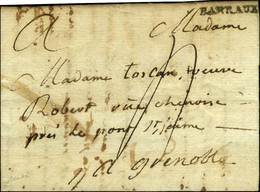 BARRAUX
Madame
Madame toscan, veuve
Robert rue chenoise
près le pont St jaime
a grenoble